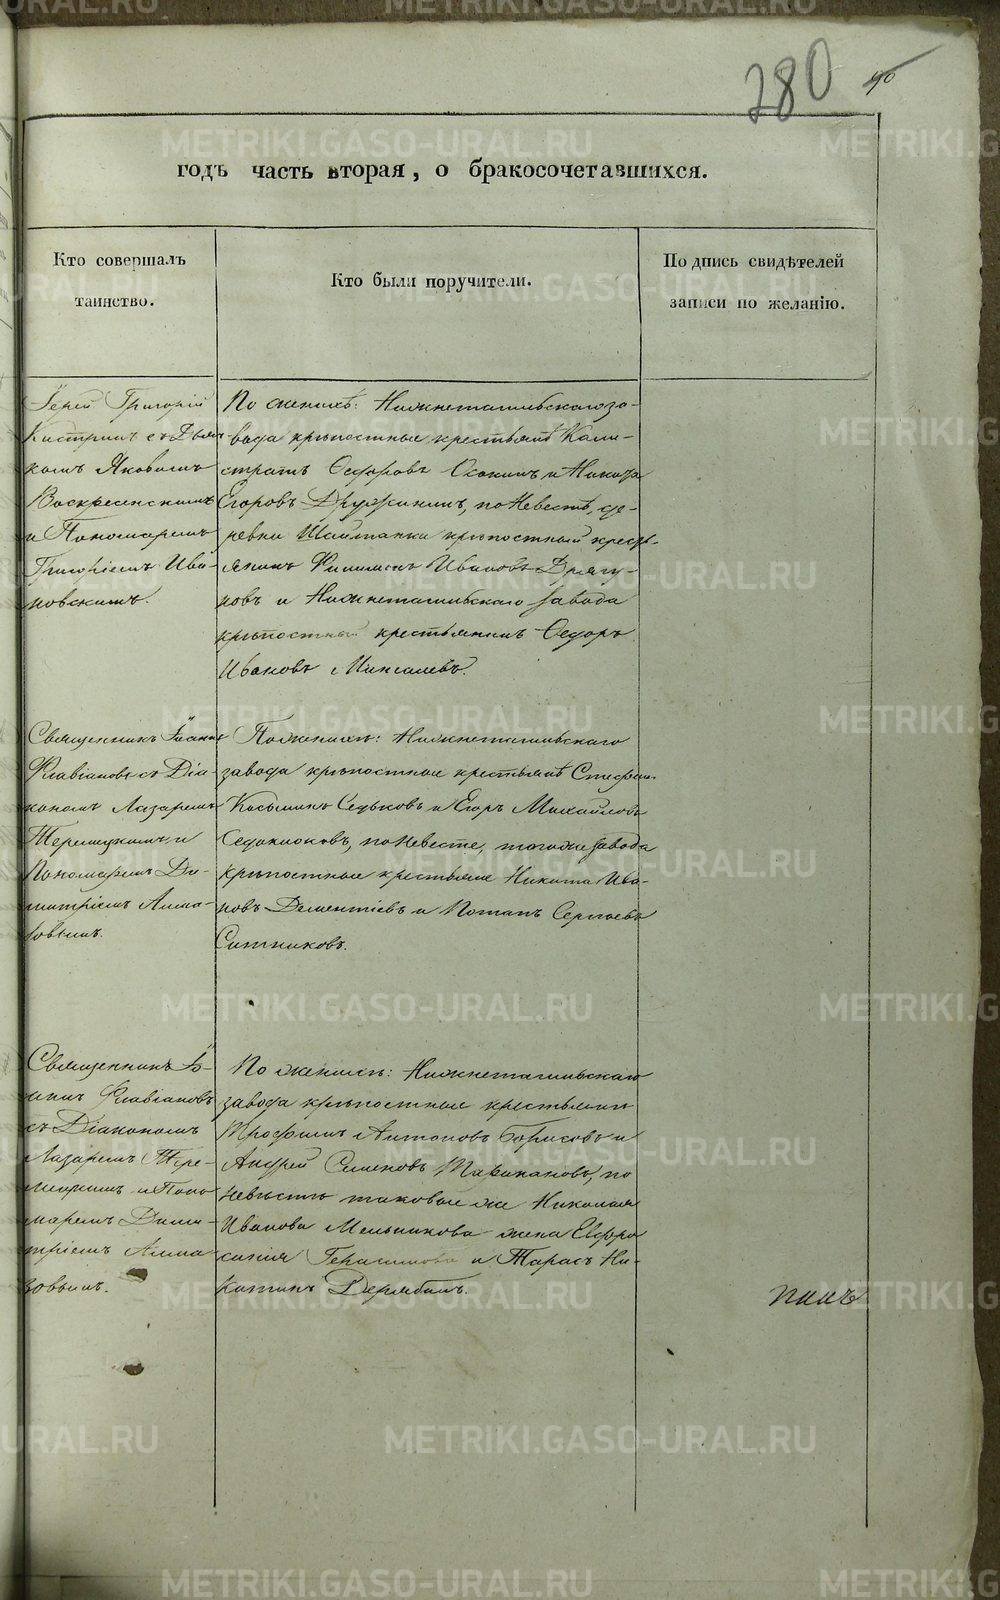 280
40
годъ часть вторая, о бракосочетавшихся.
Кто совершалъ
таинство.
Кто были поручители.
Подпись свидѣтелей
записи по желанію.
Іерей Григорій
съ Дья-
комъ Яковомъ
Воскресенскимъ
и Пономаремъ
Григоріемъ Ива-
новскимъ.
По женихѣ: Нижнетагильскаго за-
вода крѣпостные крестьяне Кали-
стратъ Федоровъ Осокинъ и
Егоровъ Дружининъ, по невестѣ, де-
ревни Шайтанки крѣпостный кресть-
янинъ Филимонъ Ивановъ Дрягу-
новъ и Нижнетагильскаго завода
крѣпостный крестьянинъ Федоръ
Ивановъ
Священникъ Іоаннъ
Флавіановъ съ Діа-
кономъ Лазаремъ
и
Пономаремъ Ди-
митріемъ Алма-
зовымъ.
По женихѣ: Нижнетагильскаго
завода крѣпостные крестьяне Стефанъ
Косьминъ Седьковъ и Егоръ Михайловъ
по невесте, тогоже завода
крѣпостные крестьяне Никита Ива-
новъ Дементіевъ и Потапъ Сергѣевъ
Ситниковъ.
Священникъ Іо-
аннъ Флавіановъ
съ Діакономъ
Лазаремъ
и Поно
маремъ Дими-
тріемъ Алма
зовымъ.
По женихѣ: Нижнетагильскаго
завода крѣпостные крестьяне
Трофимъ Антоновъ Борисовъ и
Андрей Симеоновъ Таракановъ, по
невѣстѣ таковые же Николая
Иванова Мельникова жена Евфро
синія Герасимова и Тарасъ Ни-
китинъ Дерябинъ.